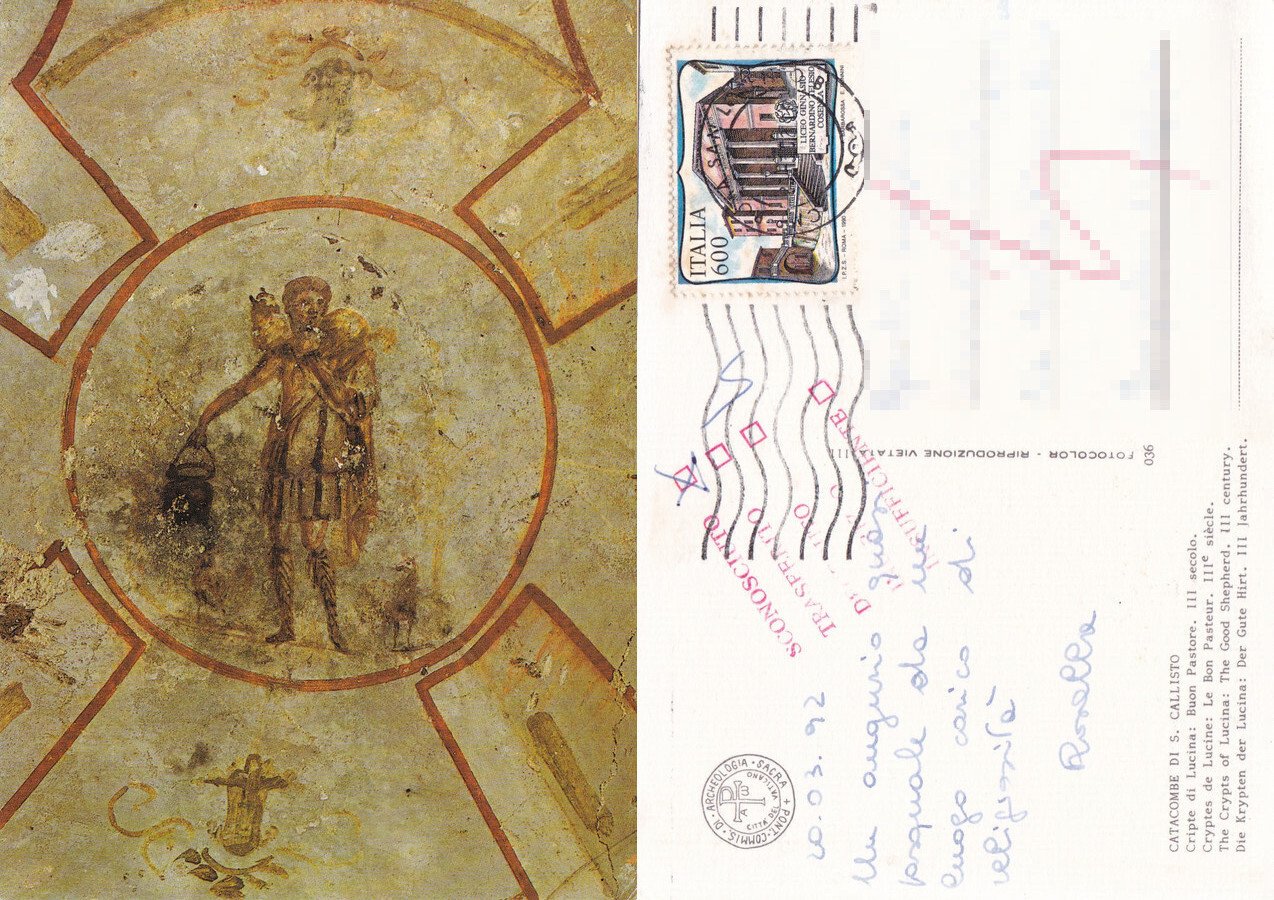 ITALIA
600
LICEO GINNASIO
BERNARDINO TELESIO
COSENZA
I.P.Z.S. - ROMA - 1990
SCONOSCIUTO
TRASFERITO
INSUFFICIENTE
PONT·COMMIS·DI·ARCHEOLOGIA·SACRA
CITTÀ DEL VATICANO
20.03.92
Un augurio quasi
pasquale da un
luogo carico di
religiosità
Rossella
FOTOCOLOR - RIPRODUZIONE VIETATA
036
CATACOMBE DI S. CALLISTO
Cripte di Lucina: Buon Pastore. III secolo.
Cryptes de Lucine: Le Bon Pasteur. IIIe siècle.
The Crypts of Lucina: The Good Shepherd. III century.
Die Krypten der Lucina: Der Gute Hirt. III Jahrhundert.